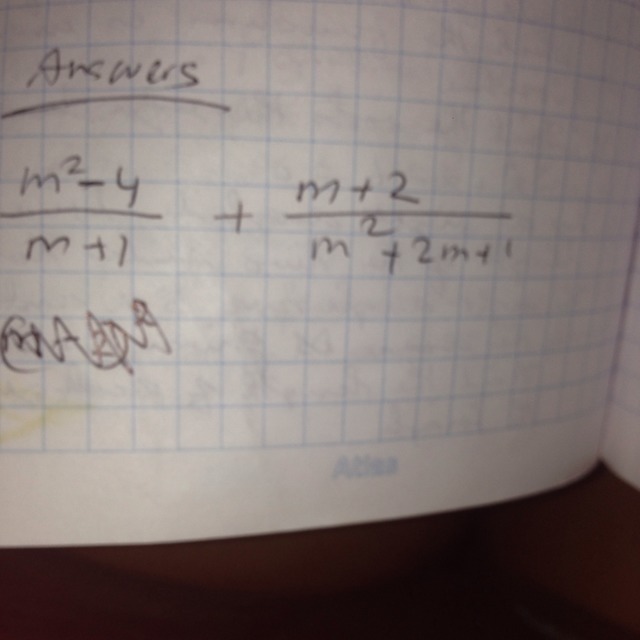 Answers
m²-4 / m+1 + m+2 / m²+2m+1
Atlas